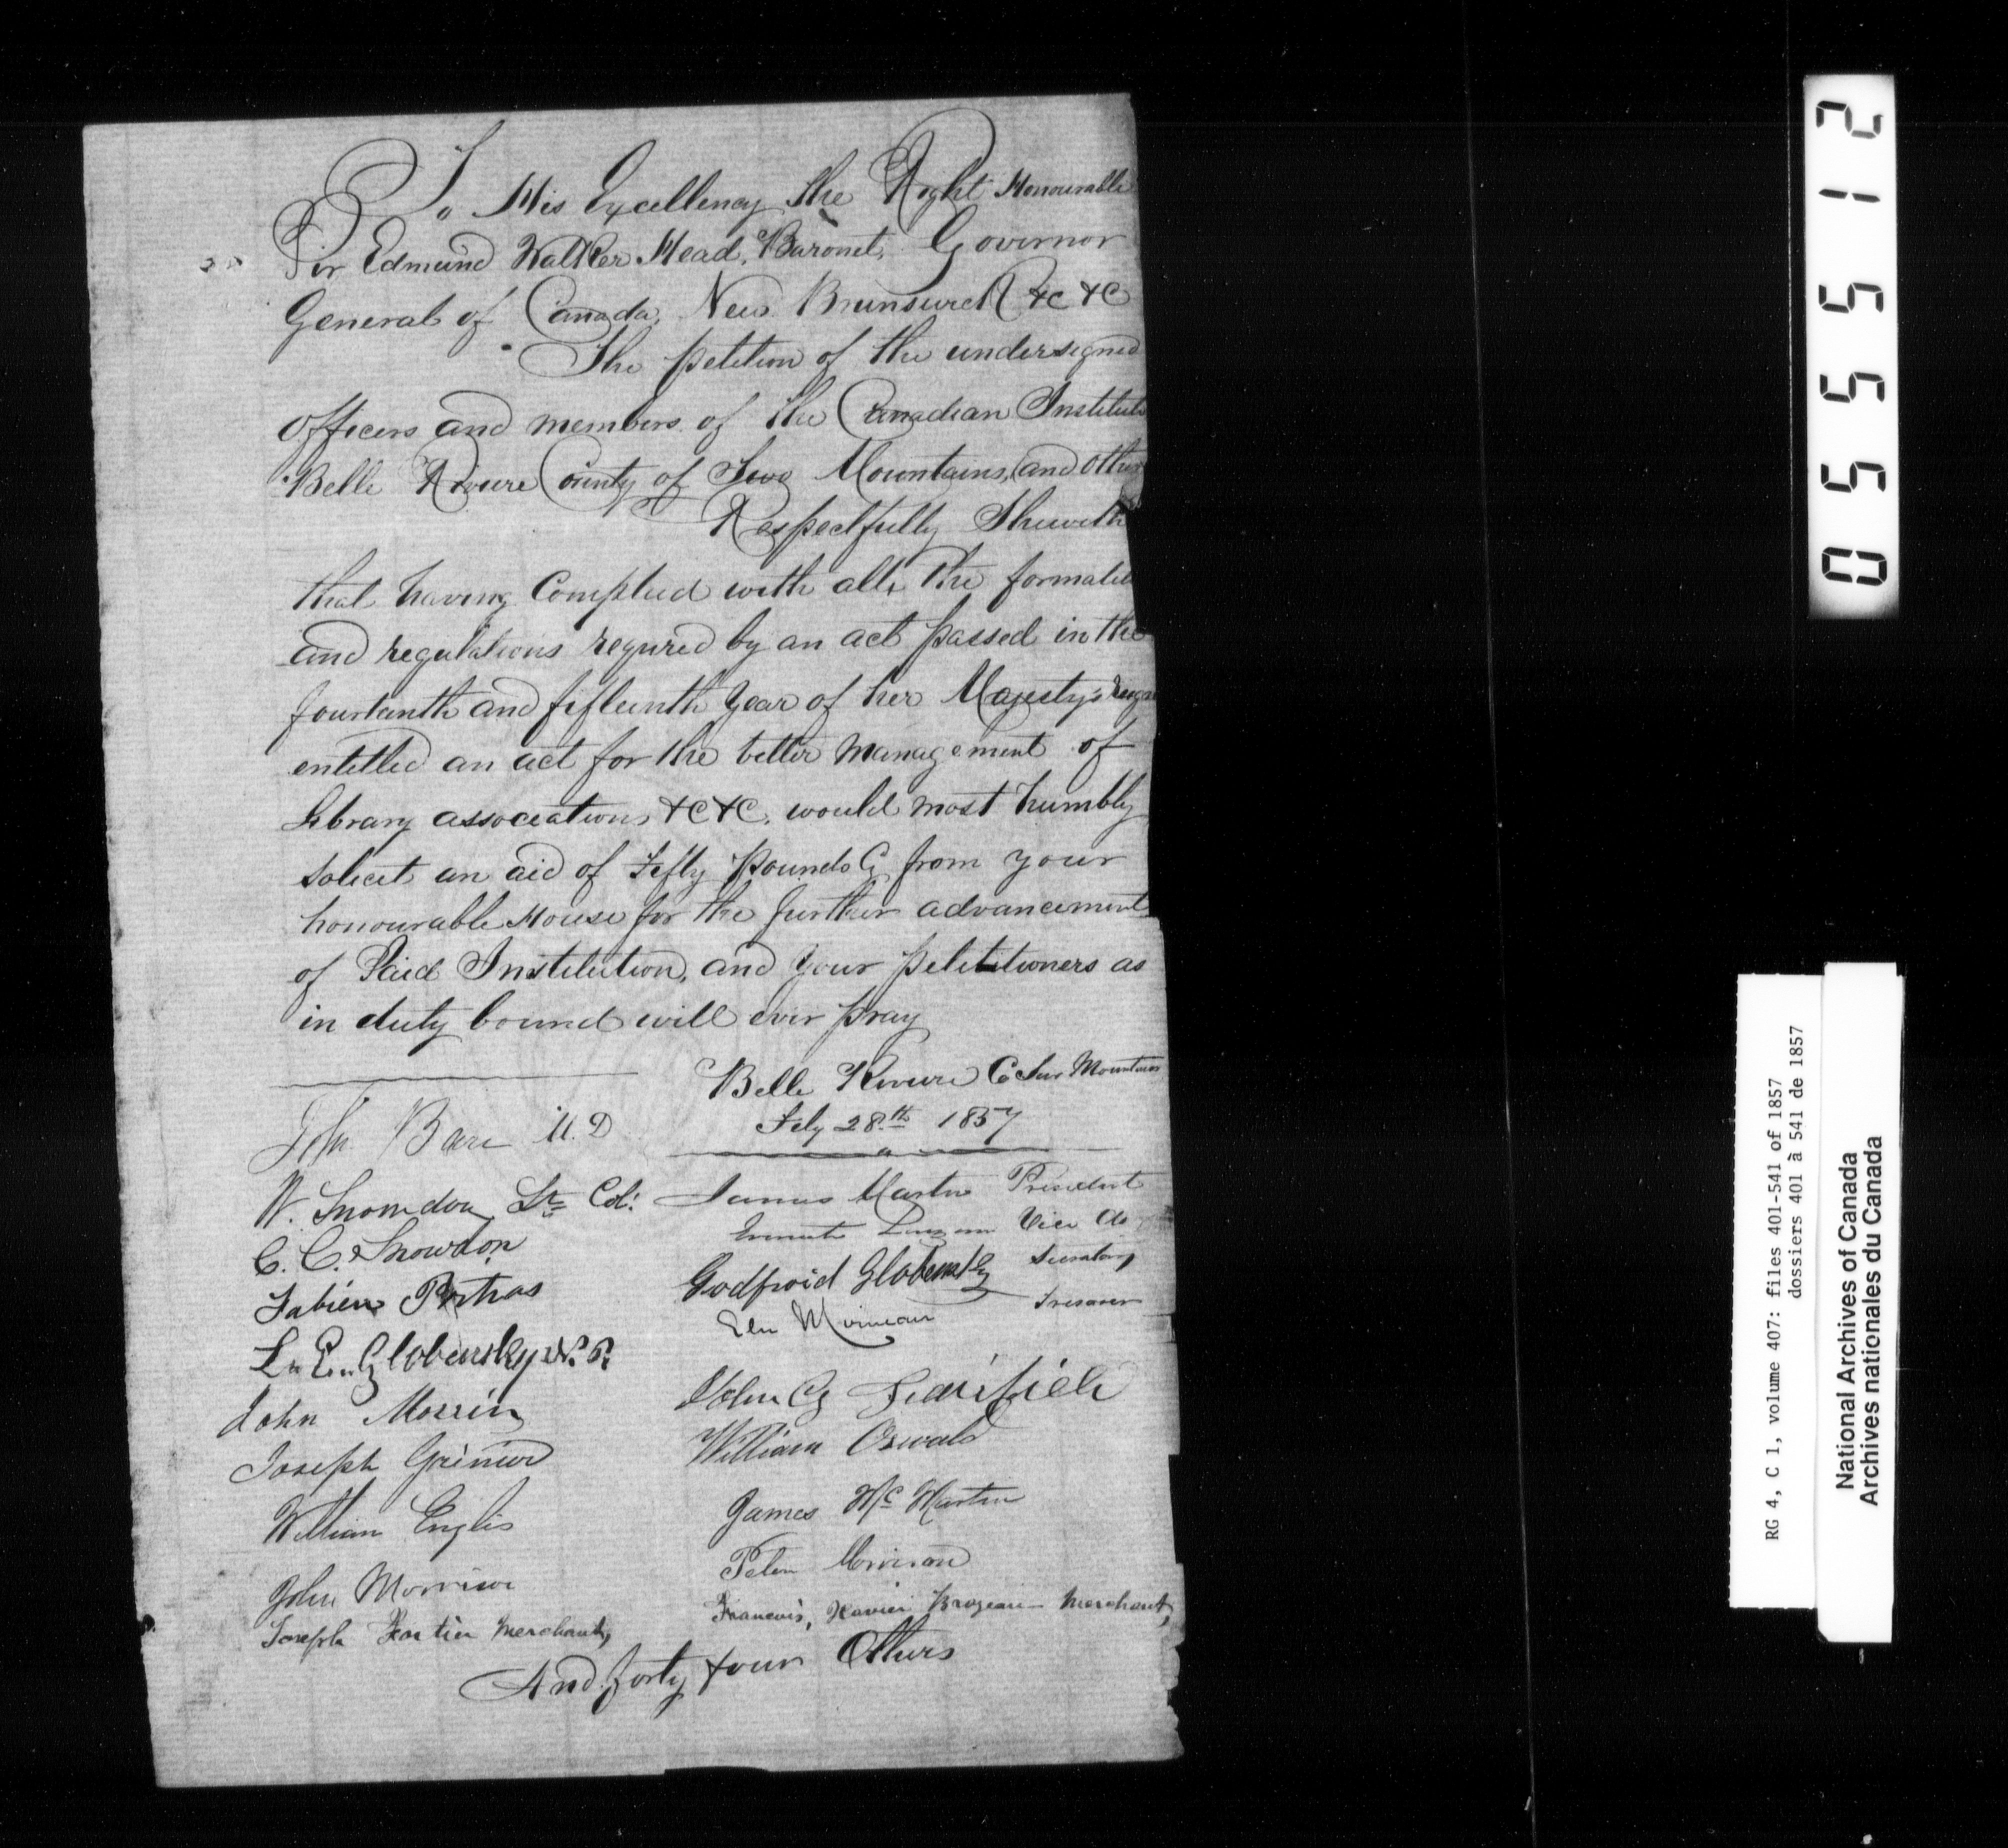 To His Excellency the Right Honourable
Sir Edmund Walker Head, Baronet, Governor
General of Canada, New Brunswick &c &c
The petition of the undersigned
officers and members of the Canadian Institute
Belle Riviere County of Two Mountains, and others
Respectfully Sheweth
that having Complied with all the formalit
and regulations required by an act passed in the
fourtenth and fifteenth year of her Majesty's reign
entitled an act for the better management of
Library associations &c &c. would most humbly
solicit an aid of Fifty pounds Cy from your
honourable House for the further advancement
of Said Institution, and your petititioners as
in duty bound will ever pray
Belle Riviere Co Two Mountains
Feby 28th 1857
John Barr M.D
W. Snowdon Lt Col:
C. C. Snowdon
Fabien Portras
L. E. Globensky N.P.
John Morrin
Joseph Grenier
William Englis
John Morrison
Joseph Fortier Merchant,
James Martin President
Vice do
Godfroid Globensky Secretary
Moineau Tresorer
John Cy Fairfield
William Oswald
James Mc Martin
Peter Morrison
Francois, Xavier Brazeau Merchant,
And forty four Others
05512
RG 4, C 1, volume 407: files 401-541 of 1857
dossiers 401 à 541 de 1857
National Archives of Canada
Archives nationales du Canada